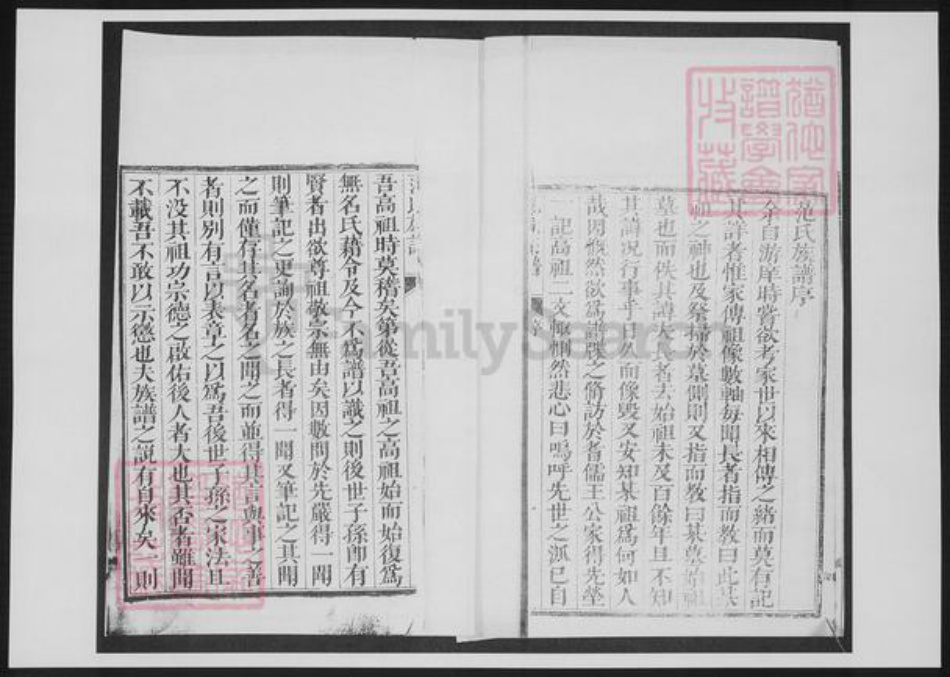 范氏族譜序
余自游庠時嘗欲考家世以來相傳之緒而莫有記
其詳者惟家傳祖像數軸每聞長者指而教曰此某
祖之神也及祭掃於墓側則又指而教曰某墓始祖
墓也而佚其諱大父者去始祖未及百餘年且不知
其諱况行事乎日久而像毀又安知某祖爲何如人
哉因慨然欲爲譜牒之脩訪於耆儒王公家得先塋
記高祖二文輒惻然悲心曰嗚呼先世之派已自
吾高祖時莫稽矣第從吾高祖之高祖始而始復爲
無名氏藉令及今不爲譜以識之則後世子孫卽有
賢者出欲尊祖敬宗無由矣因數問於先嚴得一聞
則筆記之更詢於族之長者得一聞又筆記之其聞
之而僅存其名者名之聞之而並得其言與事之善
者則別有言以表章之以爲吾後世子孫之家法且
不没其祖功宗德之啟佑後人者大也其否者雖聞
不載吾不敢以示懲也夫族譜之説有自來矣一則
FamilySearch
譜學會
收藏